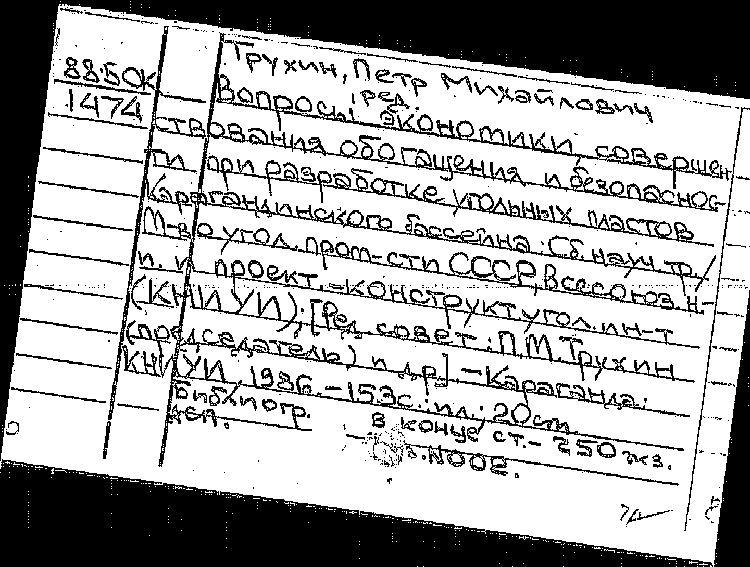 Трухин, Петр Михайлович
88.50К
ред.
1474
Вопросы экономики, совершен
ствования обогащения и безопаснос-
ти при разработке угольных пластов
Карагандинского бассейна: Сб. науч. тр./
М-во угол. пром-сти СССР, Всесоюз. н.-
и. и проект.-конструкт. угол. ин-т
(КНИУИ); [Ред. совет: П.М. Трухин
(председатель) и др.]. - Караганда:
КНИУИ, 1986. - 153с.: ил.; 20см.
Библиогр. в конце ст. - 250 экз.
ДСП. №002.